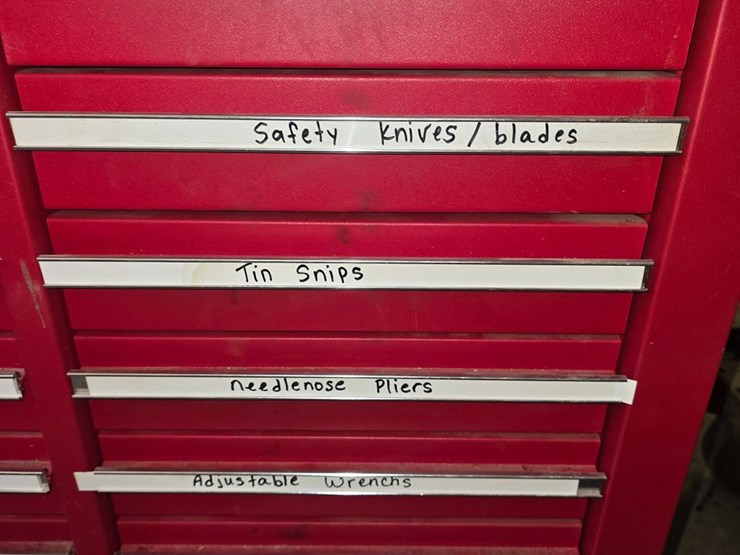 Safety knives / blades
Tin Snips
needlenose Pliers
Adjustable Wrenchs